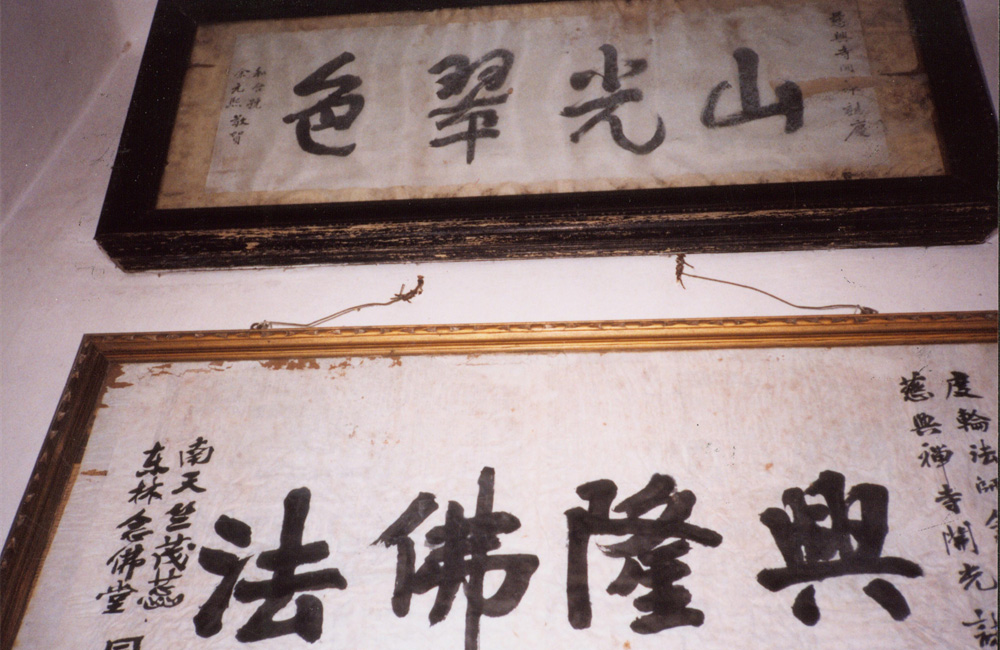 慈興寺開光誌慶
山光翠色
敬賀
度輪法師
慈興禪寺開光
興隆佛法
南天竺茂蕊
东林念佛堂 同